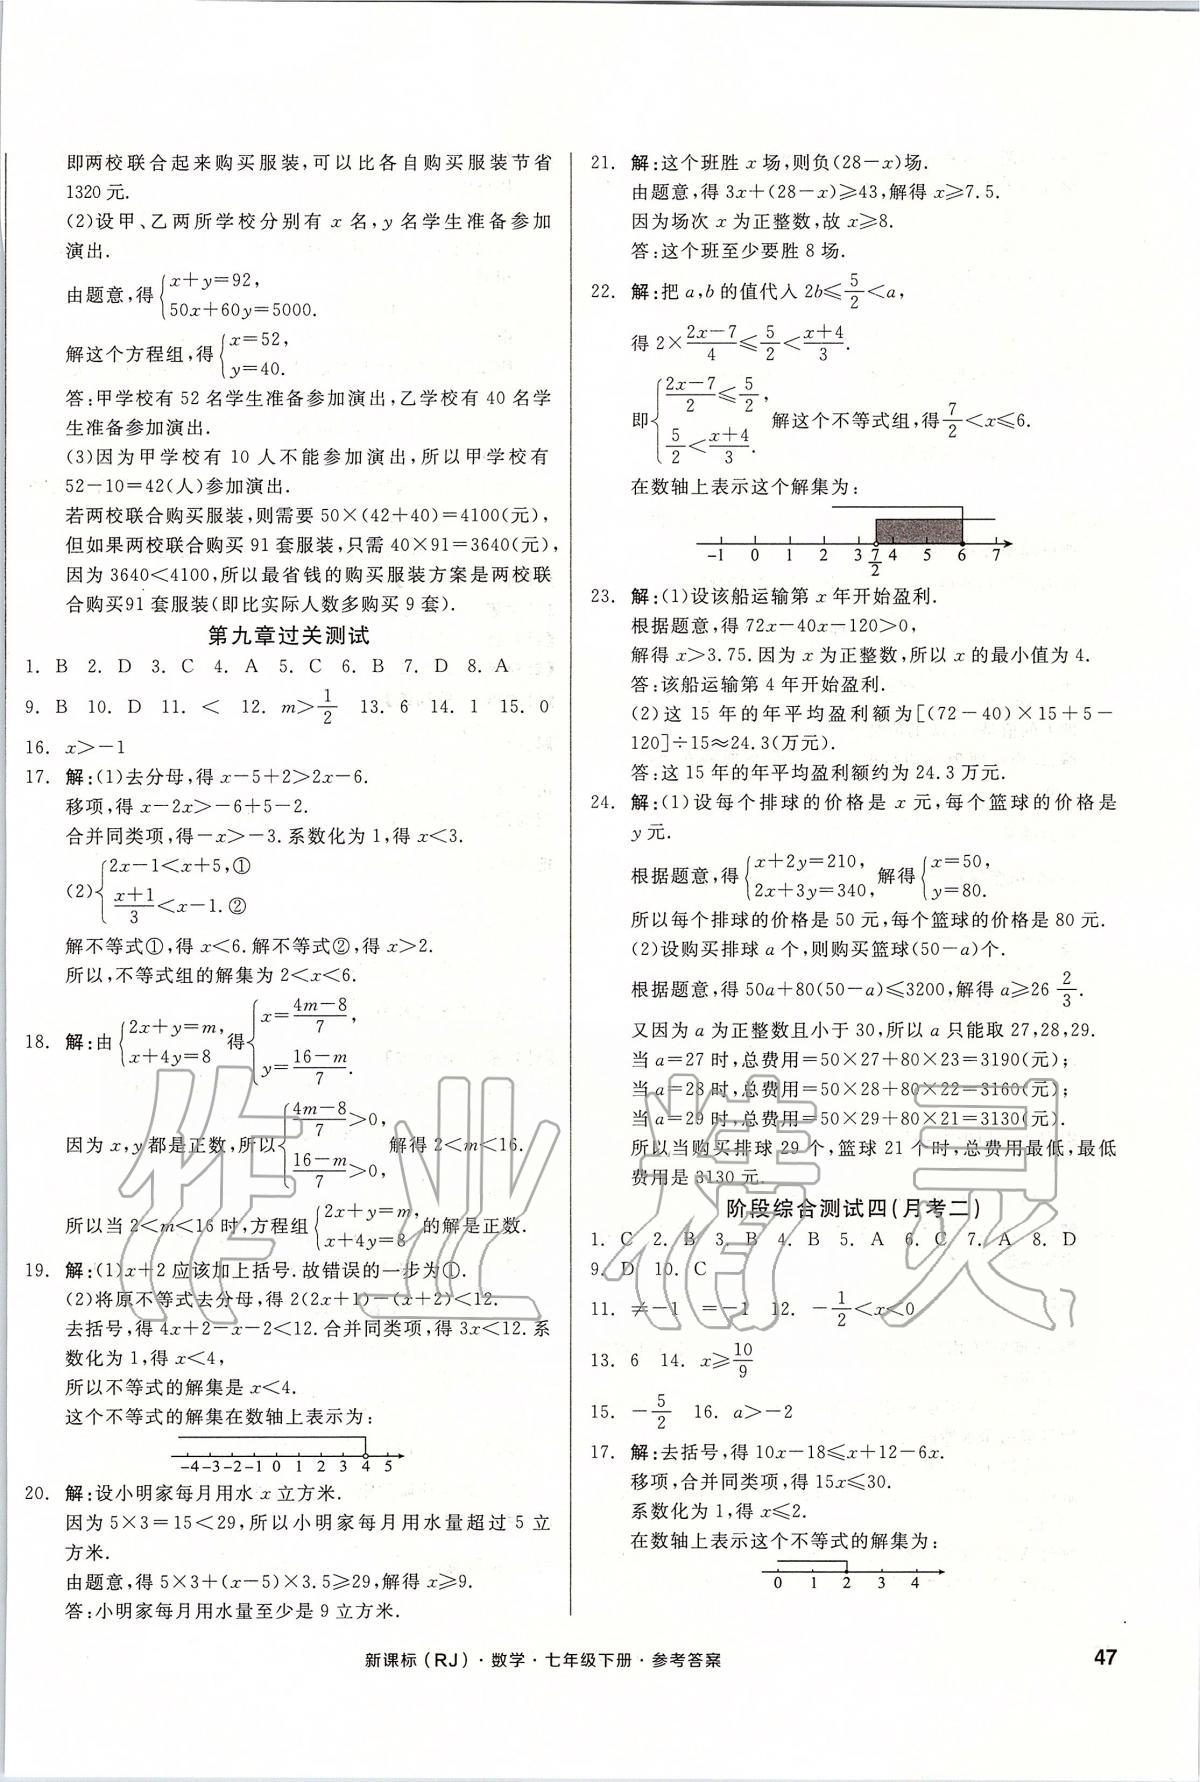 即两校联合起来购买服装,可以比各自购买服装节省
1320元.
(2)设甲、乙两所学校分别有 x 名,y 名学生准备参加
演出.
由题意,得{x+y=92,
50x+60y=5000.
解这个方程组,得{x=52,
y=40.
答:甲学校有 52 名学生准备参加演出,乙学校有 40 名学
生准备参加演出.
(3)因为甲学校有 10 人不能参加演出,所以甲学校有
52-10=42(人)参加演出.
若两校联合购买服装,则需要 50×(42+40)=4100(元),
但如果两校联合购买 91 套服装,只需 40×91=3640(元),
因为 3640<4100,所以最省钱的购买服装方案是两校联
合购买91 套服装(即比实际人数多购买 9 套).
第九章过关测试
1. B 2. D 3. C 4. A 5. C 6. B 7. D 8. A
9. B 10. D 11. < 12. m>1/2 13. 6 14. 1 15. 0
16. x>-1
17. 解:(1)去分母,得 x-5+2>2x-6.
移项,得 x-2x>-6+5-2.
合并同类项,得-x>-3.系数化为 1,得 x<3.
(2){2x-1<x+5,①
(x+1)/3<x-1.②
解不等式①,得 x<6.解不等式②,得 x>2.
所以,不等式组的解集为 2<x<6.
18. 解:由{2x+y=m, x+4y=8 得{x=(4m-8)/7,
y=(16-m)/7.
因为 x,y 都是正数,所以{(4m-8)/7>0, (16-m)/7>0, 解得 2<m<16.
所以当 2<m<16 时,方程组{2x+y=m, x+4y=8 的解是正数.
19. 解:(1)x+2 应该加上括号.故错误的一步为①.
(2)将原不等式去分母,得 2(2x+1)-(x+2)<12.
去括号,得 4x+2-x-2<12.合并同类项,得 3x<12.系
数化为 1,得 x<4,
所以不等式的解集是 x<4.
这个不等式的解集在数轴上表示为:
-4 -3 -2 -1 0 1 2 3 4 5
20. 解:设小明家每月用水 x 立方米.
因为 5×3=15<29,所以小明家每月用水量超过 5 立
方米.
由题意,得 5×3+(x-5)×3.5≥29,解得 x≥9.
答:小明家每月用水量至少是 9 立方米.
21. 解:这个班胜 x 场,则负(28-x)场.
由题意,得 3x+(28-x)≥43,解得 x≥7.5.
因为场次 x 为正整数,故 x≥8.
答:这个班至少要胜 8 场.
22. 解:把 a,b 的值代入 2b≤5/2<a,
得 2×(2x-7)/4≤5/2<(x+4)/3.
即{(2x-7)/2≤5/2, 5/2<(x+4)/3. 解这个不等式组,得7/2<x≤6.
在数轴上表示这个解集为:
-1 0 1 2 3 7/2 4 5 6 7
23. 解:(1)设该船运输第 x 年开始盈利.
根据题意,得 72x-40x-120>0,
解得 x>3.75.因为 x 为正整数,所以 x 的最小值为 4.
答:该船运输第 4 年开始盈利.
(2)这 15 年的年平均盈利额为[(72-40)×15+5-
120]÷15≈24.3(万元).
答:这 15 年的年平均盈利额约为 24.3 万元.
24. 解:(1)设每个排球的价格是 x 元,每个篮球的价格是
y 元.
根据题意,得{x+2y=210, 2x+3y=340, 解得{x=50, y=80.
所以每个排球的价格是 50 元,每个篮球的价格是 80 元.
(2)设购买排球 a 个,则购买篮球(50-a)个.
根据题意,得 50a+80(50-a)≤3200,解得 a≥26 2/3.
又因为 a 为正整数且小于 30,所以 a 只能取 27,28,29.
当 a=27 时,总费用=50×27+80×23=3190(元);
当 a=28 时,总费用=50×28+80×22=3160(元);
当 a=29 时,总费用=50×29+80×21=3130(元).
所以当购买排球 29 个,篮球 21 个时,总费用最低,最低
费用是 3130 元.
阶段综合测试四(月考二)
1. C 2. B 3. B 4. B 5. A 6. C 7. A 8. D
9. D 10. C
11. ≠-1 =-1 12. -1/2<x<0
13. 6 14. x≥10/9
15. -5/2 16. a>-2
17. 解:去括号,得 10x-18≤x+12-6x.
移项,合并同类项,得 15x≤30.
系数化为 1,得 x≤2.
在数轴上表示这个不等式的解集为:
0 1 2 3 4
新课标(RJ)·数学·七年级下册·参考答案
47
作业精灵